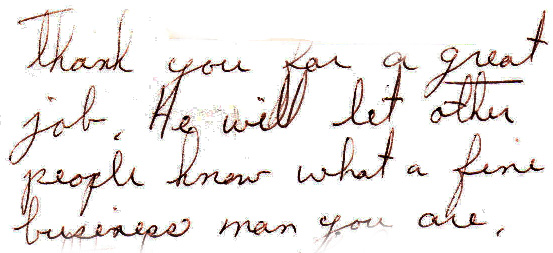 Thank you for a great
job. He will let other
people know what a fine
business man you are.